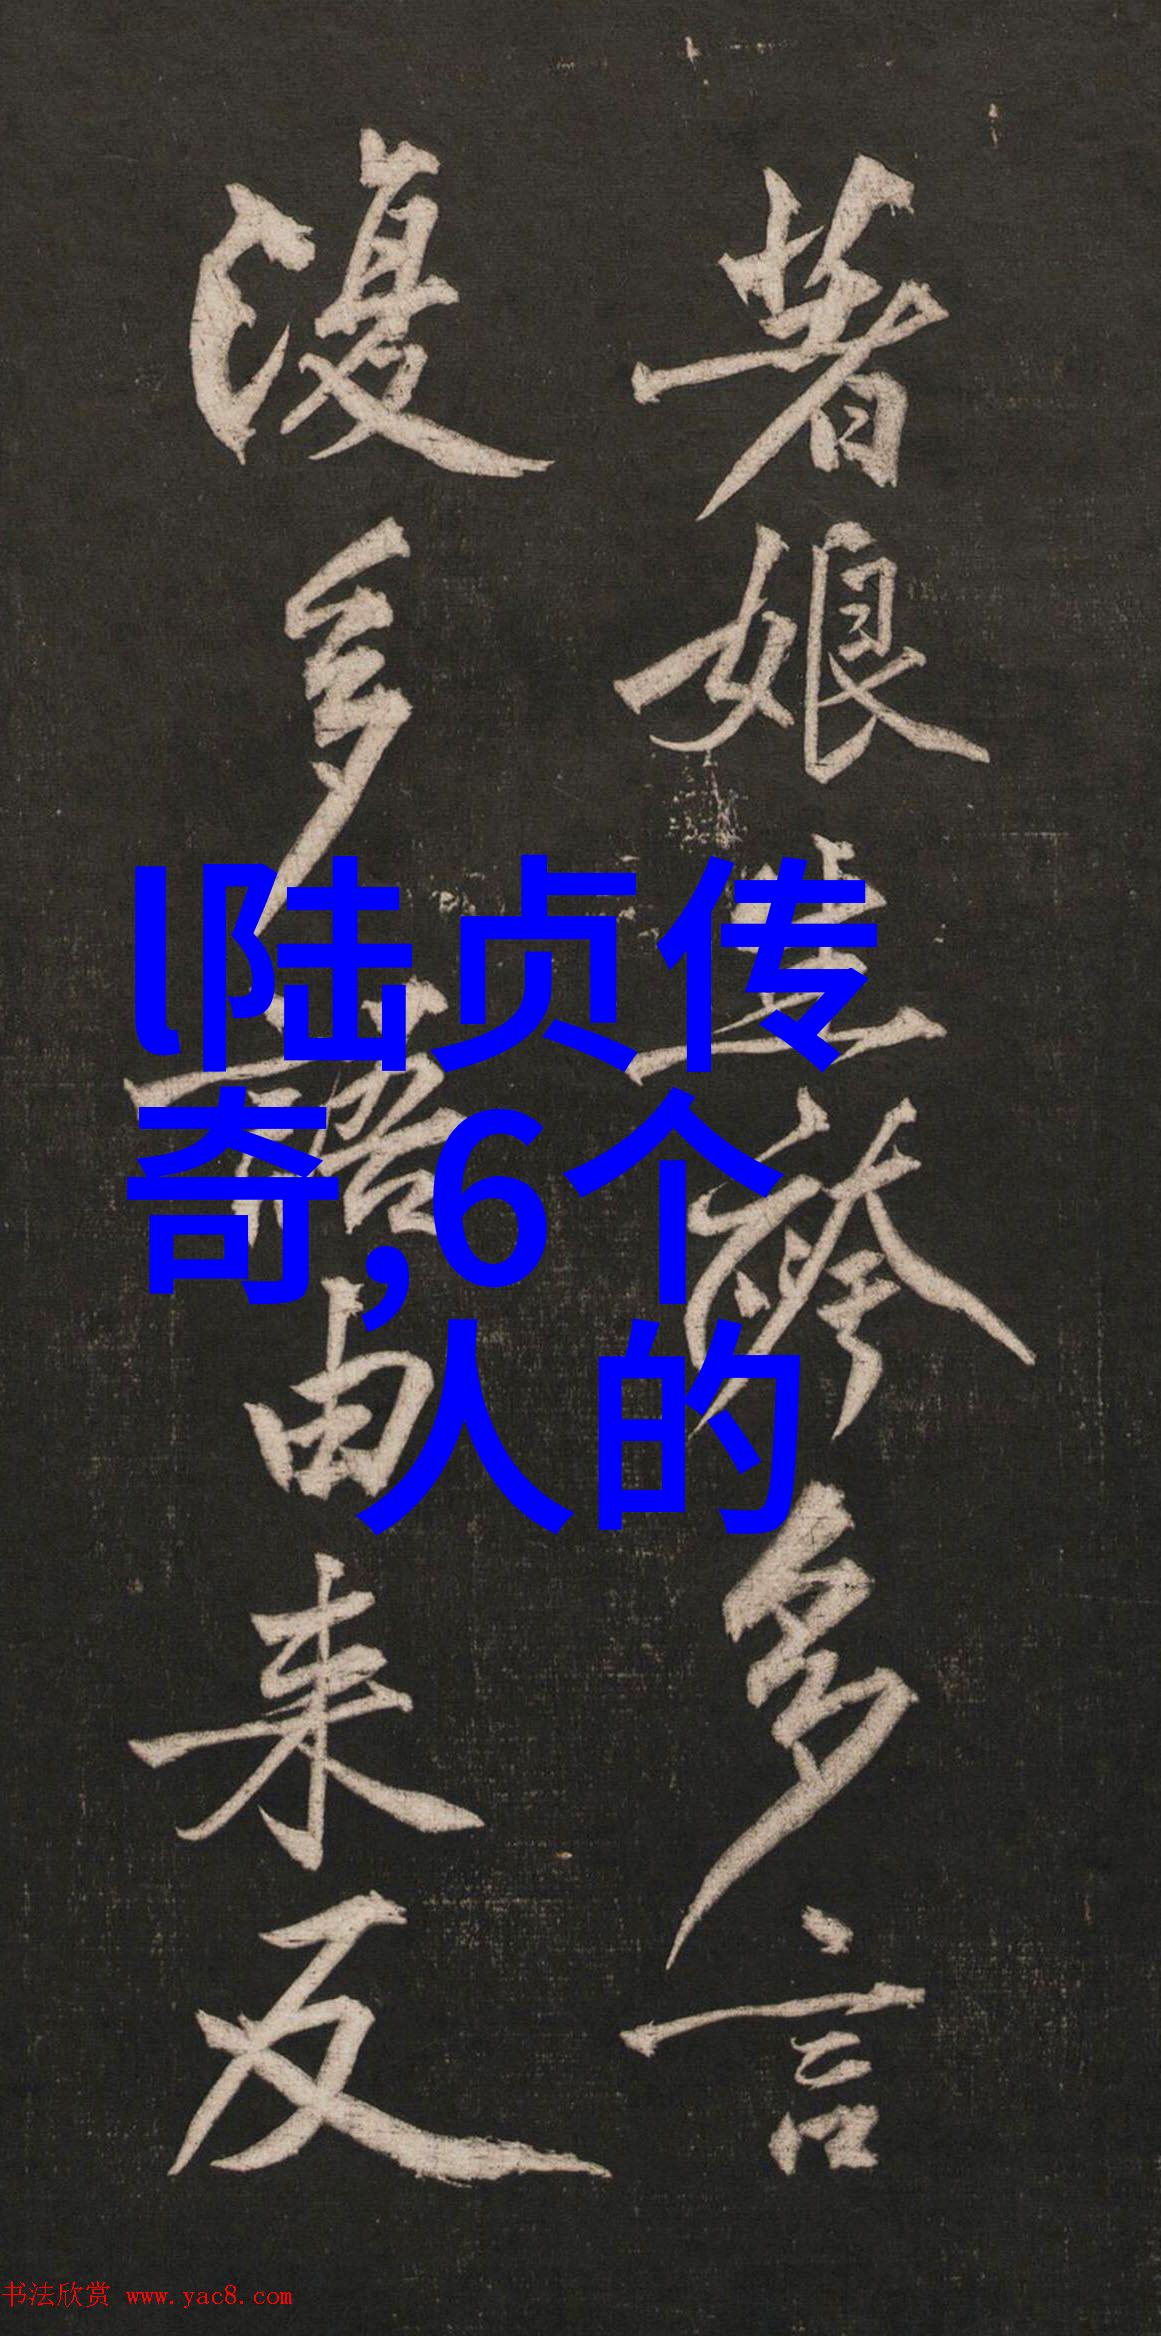 著娘生袴多言
復多語由来反
l陆贞传
奇,6个
人的
书法欣赏 www.yac8.com